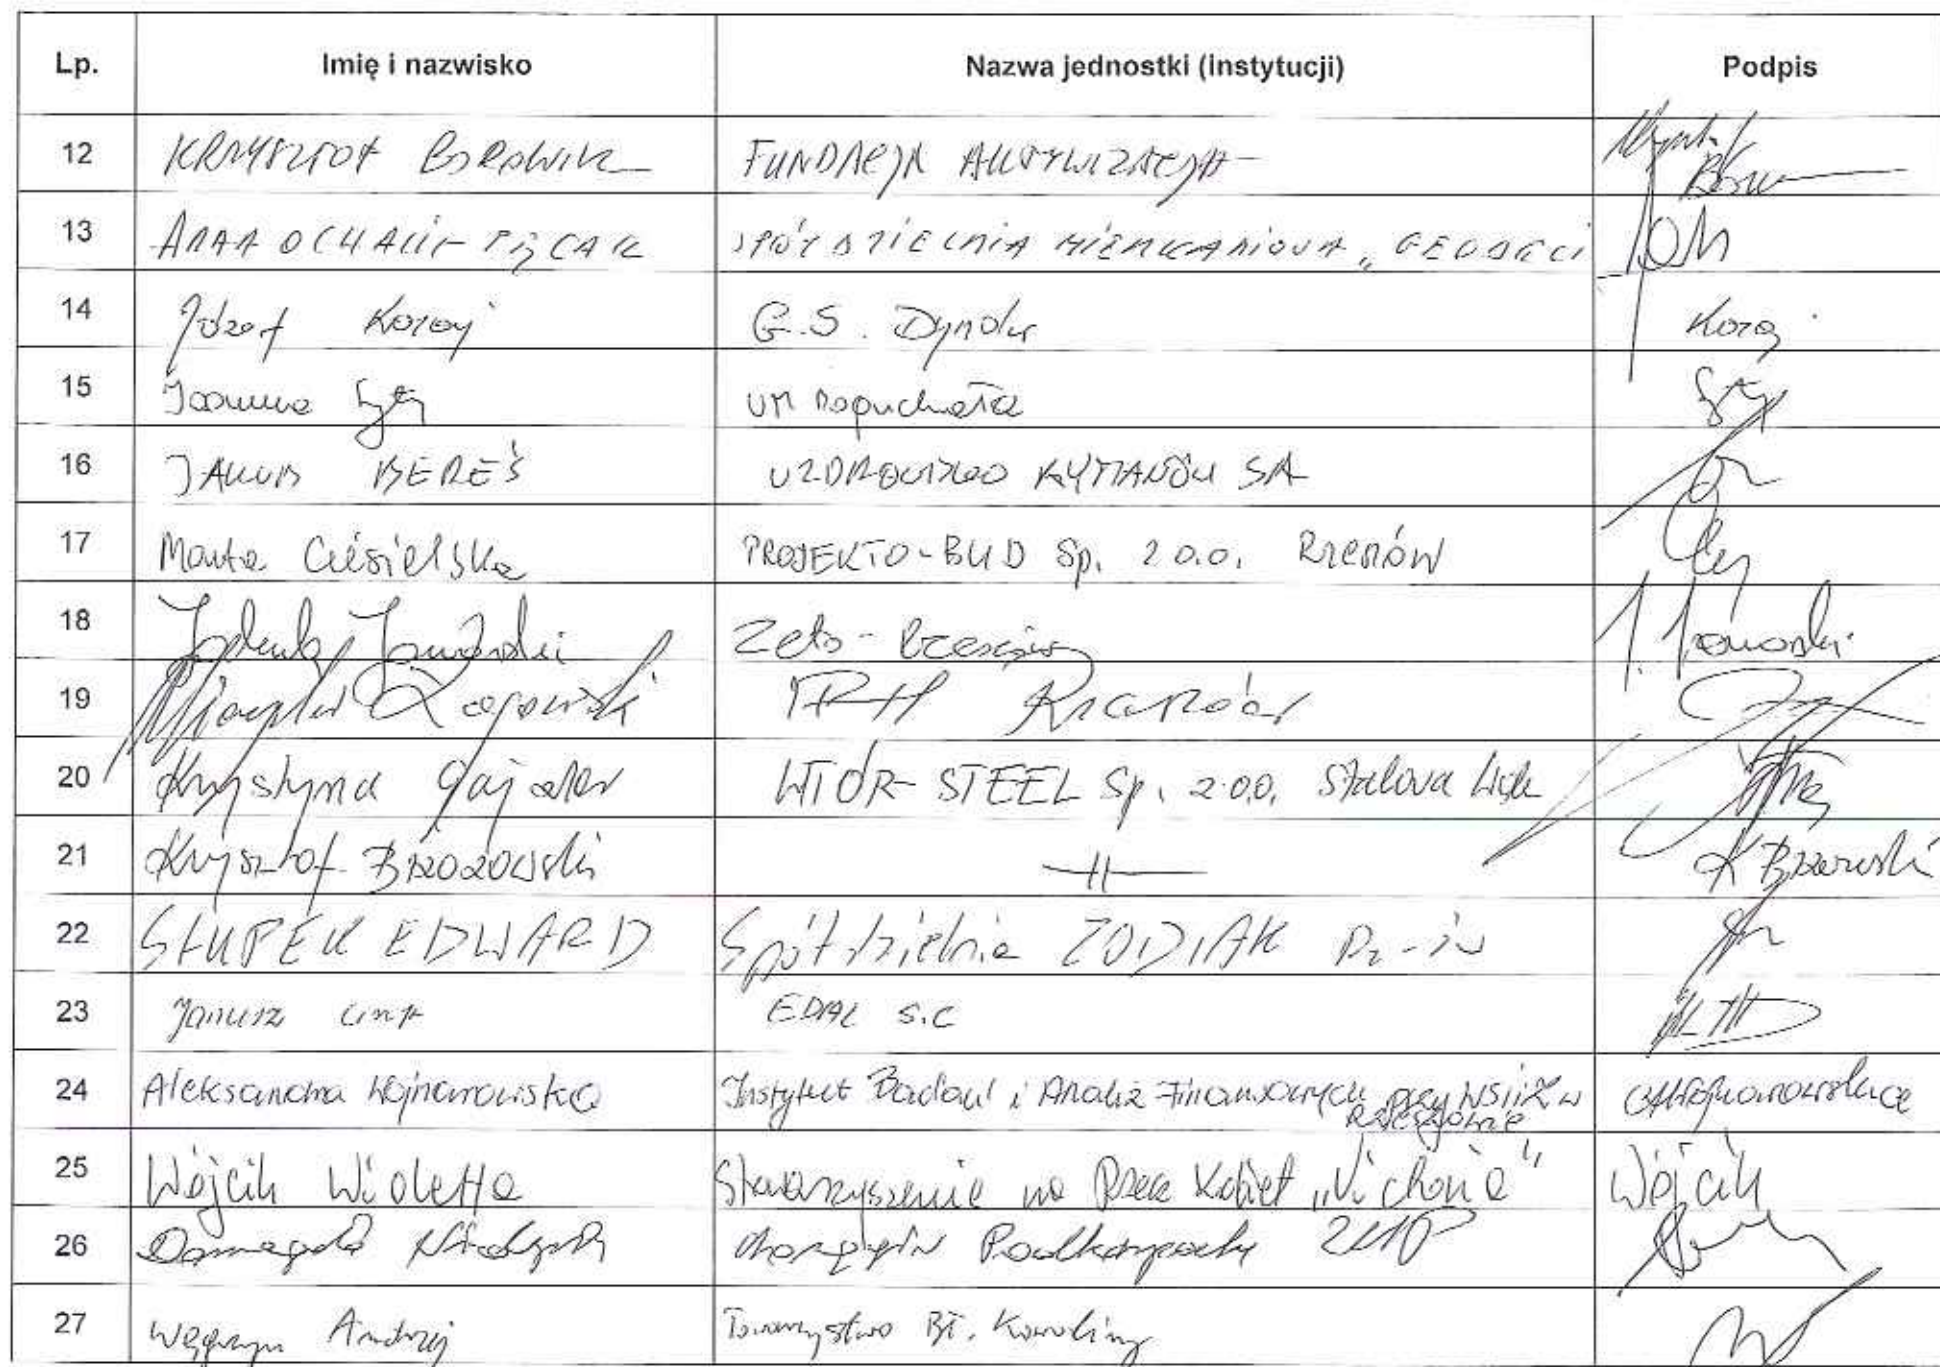 Lp. Imię i nazwisko Nazwa jednostki (instytucji) Podpis
12 KRZYSZTOF BOROWIK FUNDACJA AKTYWIZACJA
13 ANNA SPÓŁDZIELNIA MIESZKANIOWA „GEODECI
14 Józef Koraj G.S. Dynów Koraj
15 Joanna UM
16 JAKUB BEREŚ UZDROWISKO RYMANÓW SA
17 Marta Ciesielska PROJEKTO-BUD Sp. z o.o. Rzeszów
18 Zeto - Rzeszów J. Jaworski
19 Rzeszów
20 Krystyna WTÓR-STEEL Sp. z o.o. Stalowa Wola
21 Krzysztof Brzozowski -||- K Brzozowski
22 SŁUPEK EDWARD Spółdzielnia ZODIAK Rz-ów
23 Janusz EDAL S.C
24 Aleksandra Wojnarowska Instytut Badań i Analiz Finansowych przy WSIiZ w
Rzeszowie
25 Wójcik Wioletta Stowarzyszenie na Rzecz Kobiet „Victoria" Wójcik
26 Domagała Chorągiew Podkarpacka ZHP
27 Węgrzyn Andrzej Towarzystwo Bł. Karoliny